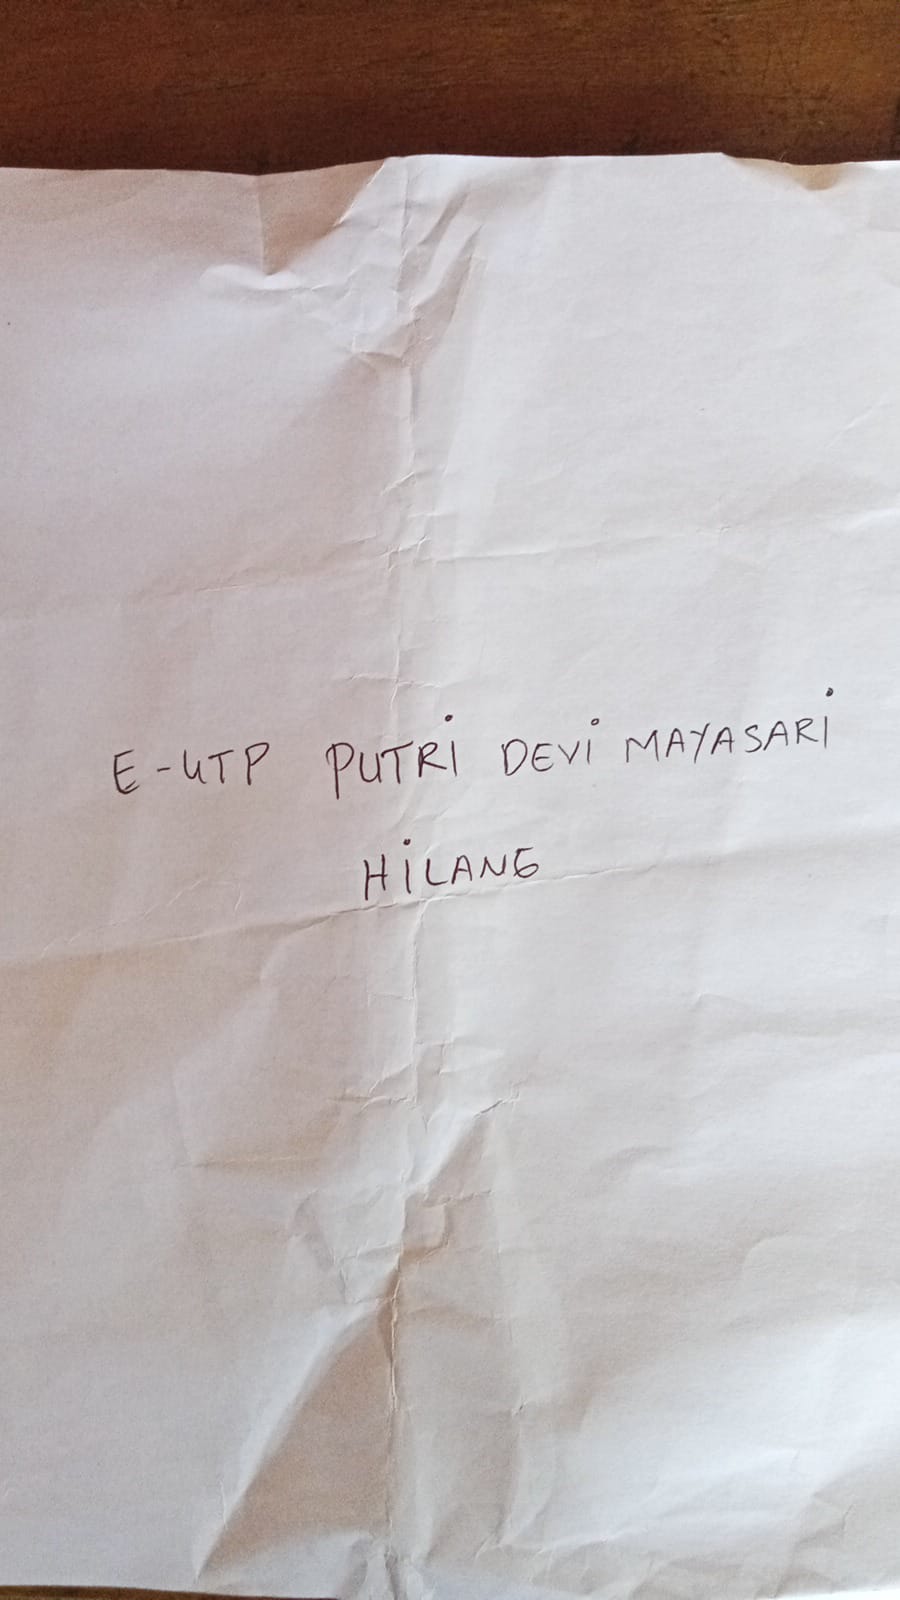 E-KTP PUTRI DEVI MAYASARI
HILANG